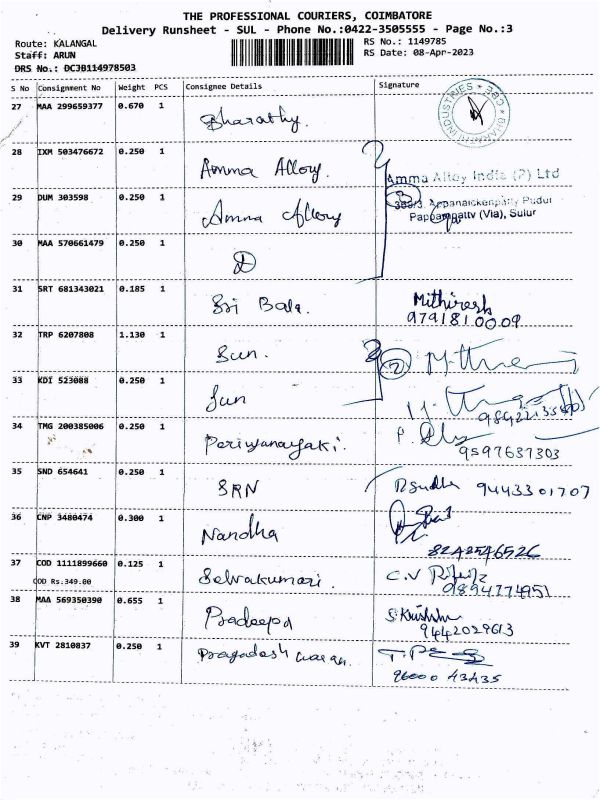 THE PROFESSIONAL COURIERS, COIMBATORE
Delivery Runsheet - SUL - Phone No.:0422-3505555 - Page No.:3
Route: KALANGAL RS No.: 1149785
Staff: ARUN RS Date: 08-Apr-2023
DRS No.: DCJB114978503
S No Consignment No Weight PCS Consignee Details Signature
27 MAA 299659377 0.670 1 Bharathy.
28 IXM 503476672 0.250 1 Amma Alloy.
Amma Alloy India (P) Ltd
29 DUM 303598 0.250 1 Amma Alloy
389/3, Appanaickenpatty Pudur
Pappampatty (Via), Sulur
30 MAA 570661479 0.250 1
31 SRT 681343021 0.185 1 Sri Bala. Mithiresh
9791810009
32 TRP 6207808 1.130 1 Sun. 2
33 KDI 523088 0.250 1 Sun
34 TMG 200385006 0.250 1 Periyanayaki.
9597637303
35 SND 654641 0.250 1 SRN R Sudha 9443301707
36 CNP 3480474 0.300 1 Nandha
8242546526
37 COD 1111899660 0.125 1 Selvakumari. C.V
COD Rs:349.00 9894774951
38 MAA 569350390 0.655 1 Pradeepa
9442029613
39 KVT 2810837 0.250 1 Pragadeshwaran.
96000 43435